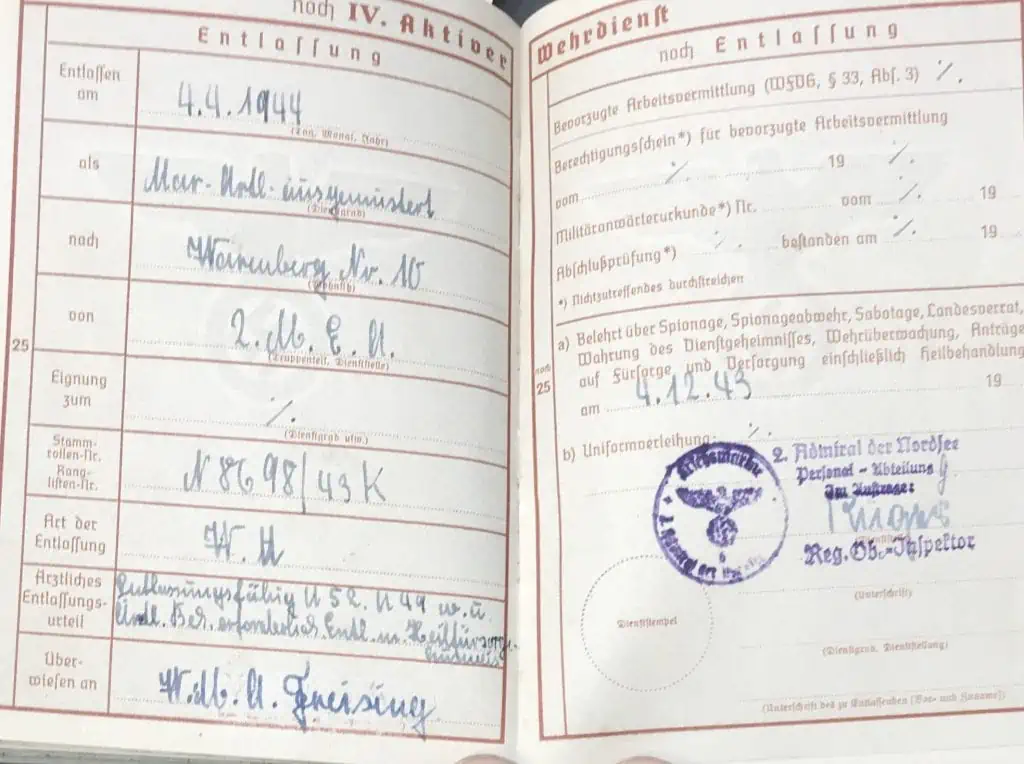 noch IV. Aktiver
Entlassung
Entlassen
am
4.4.1944
(Tag, Monat, Jahr)
als
Mar.-Artl. ausgemustert
(Dienstgrad)
nach
Nr. 10
(Wohnsitz)
von
2. M. E. A.
(Truppenteil, Dienststelle)
25
Eignung
zum
./.
(Dienstgrad usw.)
Stamm-
rollen-Nr.
Rang-
listen-Nr.
N 8698/43 K
Art der
Entlassung
W. U
Ärztliches
Entlassungs-
urteil
Entlassungsfähig U 52. U 49 w. u.
erforderlich Entl. m. Heilfürsorge-
Über-
wiesen an
W. M. A. Freising
Wehrdienst
noch Entlassung
Bevorzugte Arbeitsvermittlung (WFVG, § 33, Abs. 3) ./.
Berechtigungsschein*) für bevorzugte Arbeitsvermittlung
vom ./. 19 ./.
Militäranwärterurkunde*) Nr. vom ./. 19
Abschlußprüfung*) ./. bestanden am ./. 19
*) Nichtzutreffendes durchstreichen
noch
25
a) Belehrt über Spionage, Spionageabwehr, Sabotage, Landesverrat,
Wahrung des Dienstgeheimnisses, Wehrüberwachung, Anträge
auf Fürsorge und Versorgung einschließlich Heilbehandlung
am 4.12.43 19
b) Uniformverleihung: ./.
Kriegsmarine
2. Admiral der Nordsee
Personal-Abteilung
Im Auftrage:
Reg. Ob.-Inspektor
6
(Unterschrift)
Dienststempel
(Dienstgrad, Dienststellung)
(Unterschrift des zu Entlassenden (Vor- und Zuname))